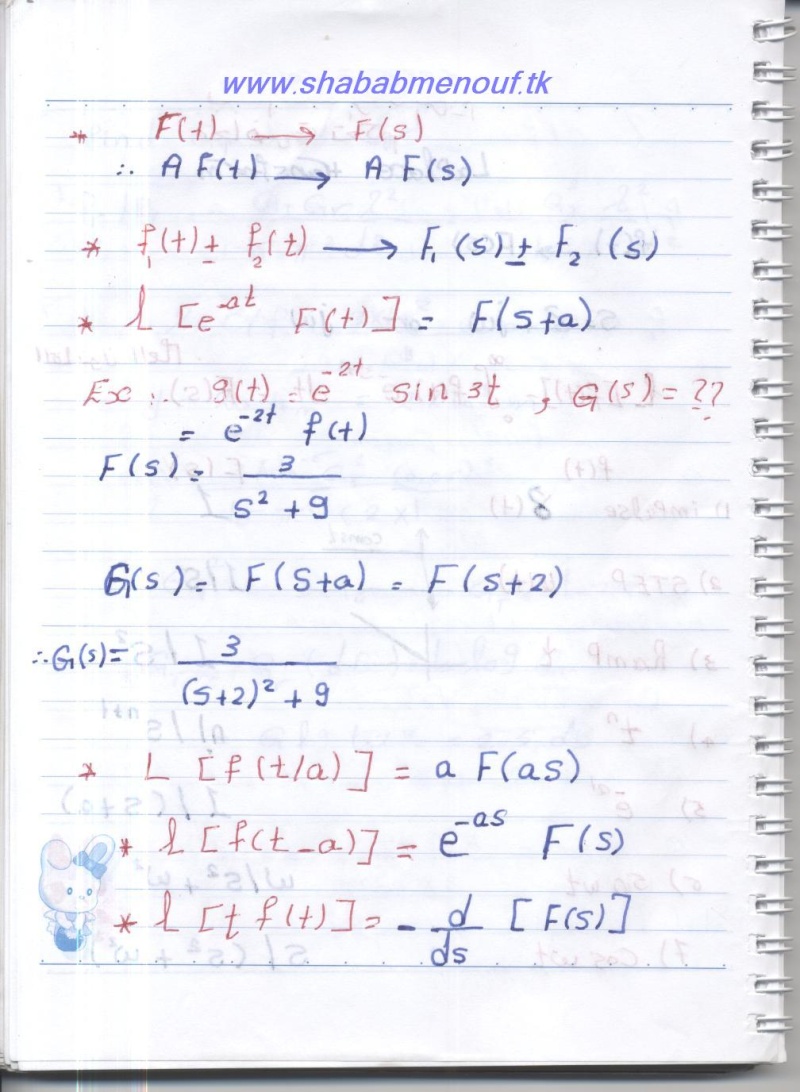 www.shababmenouf.tk
* F(t) → F(s)
∴ A F(t) → A F(s)
* f₁(t) ± f₂(t) → F₁(s) ± F₂(s)
* L [e^-at F(t)] = F(s+a)
Ex: g(t) = e^-2t sin 3t , G(s) = ??
= e^-2t f(t)
F(s) = 3 / (s² + 9)
G(s) = F(s+a) = F(s+2)
∴ G(s) = 3 / ((s+2)² + 9)
* L [f(t/a)] = a F(as)
* L [f(t-a)] = e^-as F(s)
* L [t f(t)] = - d/ds [F(s)]